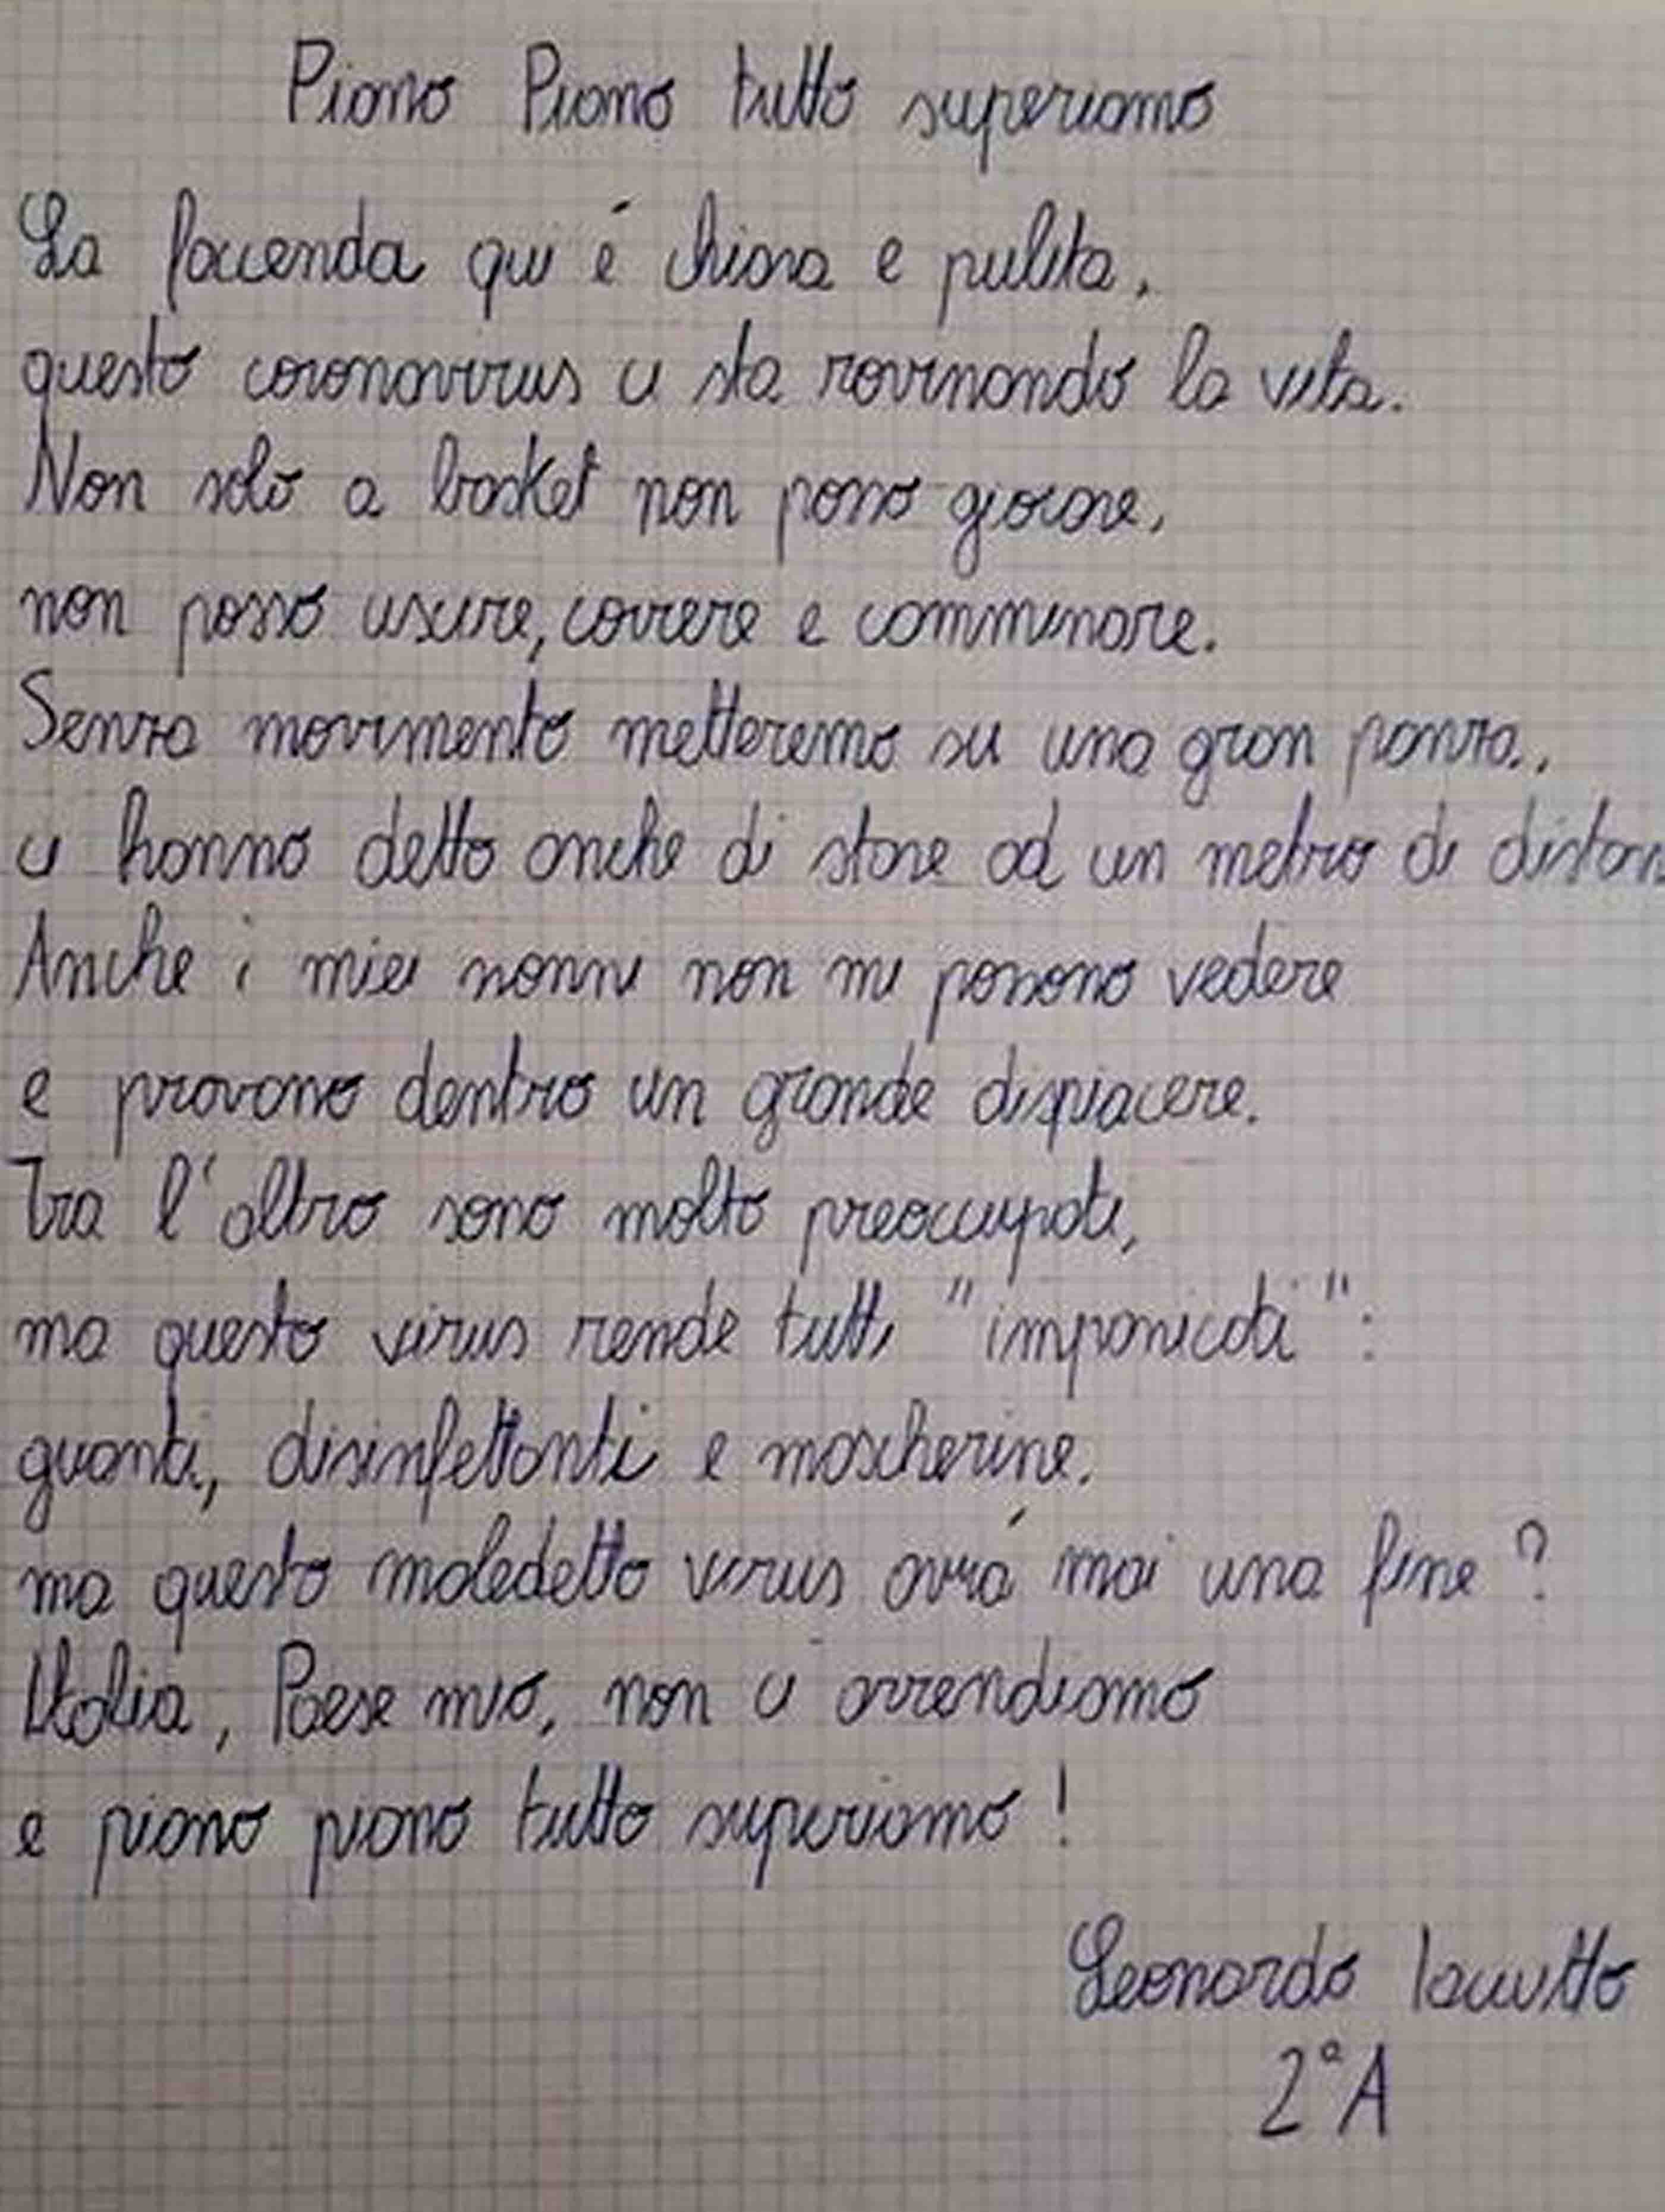 Piano Piano tutto superiamo
La faccenda qui é chiara e pulita,
questo coronavirus ci sta rovinando la vita.
Non solo a basket non posso giocare,
non posso uscire, correre e camminare.
Senza movimento metteremo su una gran panza,
ci hanno detto anche di stare ad un metro di distan
Anche i miei nonni non mi possono vedere
e provano dentro un grande dispiacere.
Tra l'altro sono molto preoccupati,
ma questo virus rende tutti "impanicati":
guanti, disinfettanti e mascherine.
ma questo maledetto virus avrá mai una fine?
Italia, Paese mio, non ci arrendiamo
e piano piano tutto superiamo!
Leonardo
2ªA